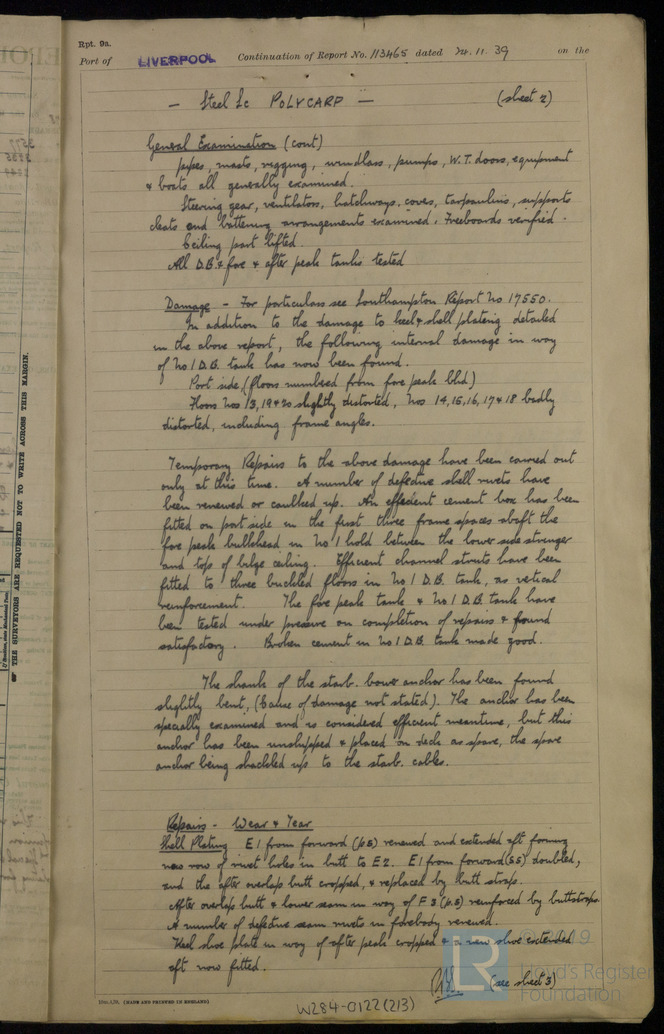 Rpt. 9a.
Port of LIVERPOOL Continuation of Report No. 113465 dated 11. 39 on the
— Steel Sc POLYCARP — (sheet 2)
General Examination (cont)
pipes, masts, rigging, windlass, pumps, W.T. doors, equipment
& boats all generally examined.
Steering gear, ventilators, hatchways, coves, tarpaulins, supports
cleats and battening arrangements examined. Freeboards verified.
Ceiling part lifted.
All D.B. & fore & after peak tanks tested
Damage - For particulars see Southampton Report No 17550.
In addition to the damage to keel & shell plating detailed
in the above report, the following internal damage in way
of No 1 D.B. tank has now been found.
Port side, (floors numbered from fore peak blhd)
Floors Nos 13, 19 & 20 slightly distorted, Nos 14, 15, 16, 17 & 18 badly
distorted, including frame angles.
Temporary Repairs to the above damage have been carried out
only at this time. A number of defective shell rivets have
been renewed or caulked up. An efficient cement box has been
fitted on port side in the first three frame spaces abaft the
fore peak bulkhead in No 1 hold between the lower side stringer
and top of bilge ceiling. Efficient channel struts have been
fitted to three buckled floors in No 1 D.B. tank, as vertical
reinforcement. The fore peak tank & No 1 D.B. tank have
been tested under pressure on completion of repairs & found
satisfactory. Broken cement in No 1 D.B. tank made good.
The shank of the starb. bower anchor has been found
slightly bent, (cause of damage not stated). The anchor has been
specially examined and is considered efficient meantime, but this
anchor has been unshipped & placed on deck as spare, the spare
anchor being shackled up to the starb. cables.
Repairs - Wear & Tear
Shell Plating E1 from forward (p.s) renewed and extended aft forming
new row of rivet holes in butt to E2. E1 from forward (s.s) doubled,
and the after overlap butt cropped, & replaced by butt strap.
After overlap butt & lower seam in way of F3 (p.s) reinforced by buttstraps.
A number of defective seam rivets in forebody renewed.
Keel shoe plate in way of after peak cropped & a new shoe extended
aft now fitted.
(see sheet 3)
W284-0122(2/3)
(MADE AND PRINTED IN ENGLAND)
THE SURVEYORS ARE REQUESTED NOT TO WRITE ACROSS THIS MARGIN.
© 2019
LR
Lloyd's Register
Foundation